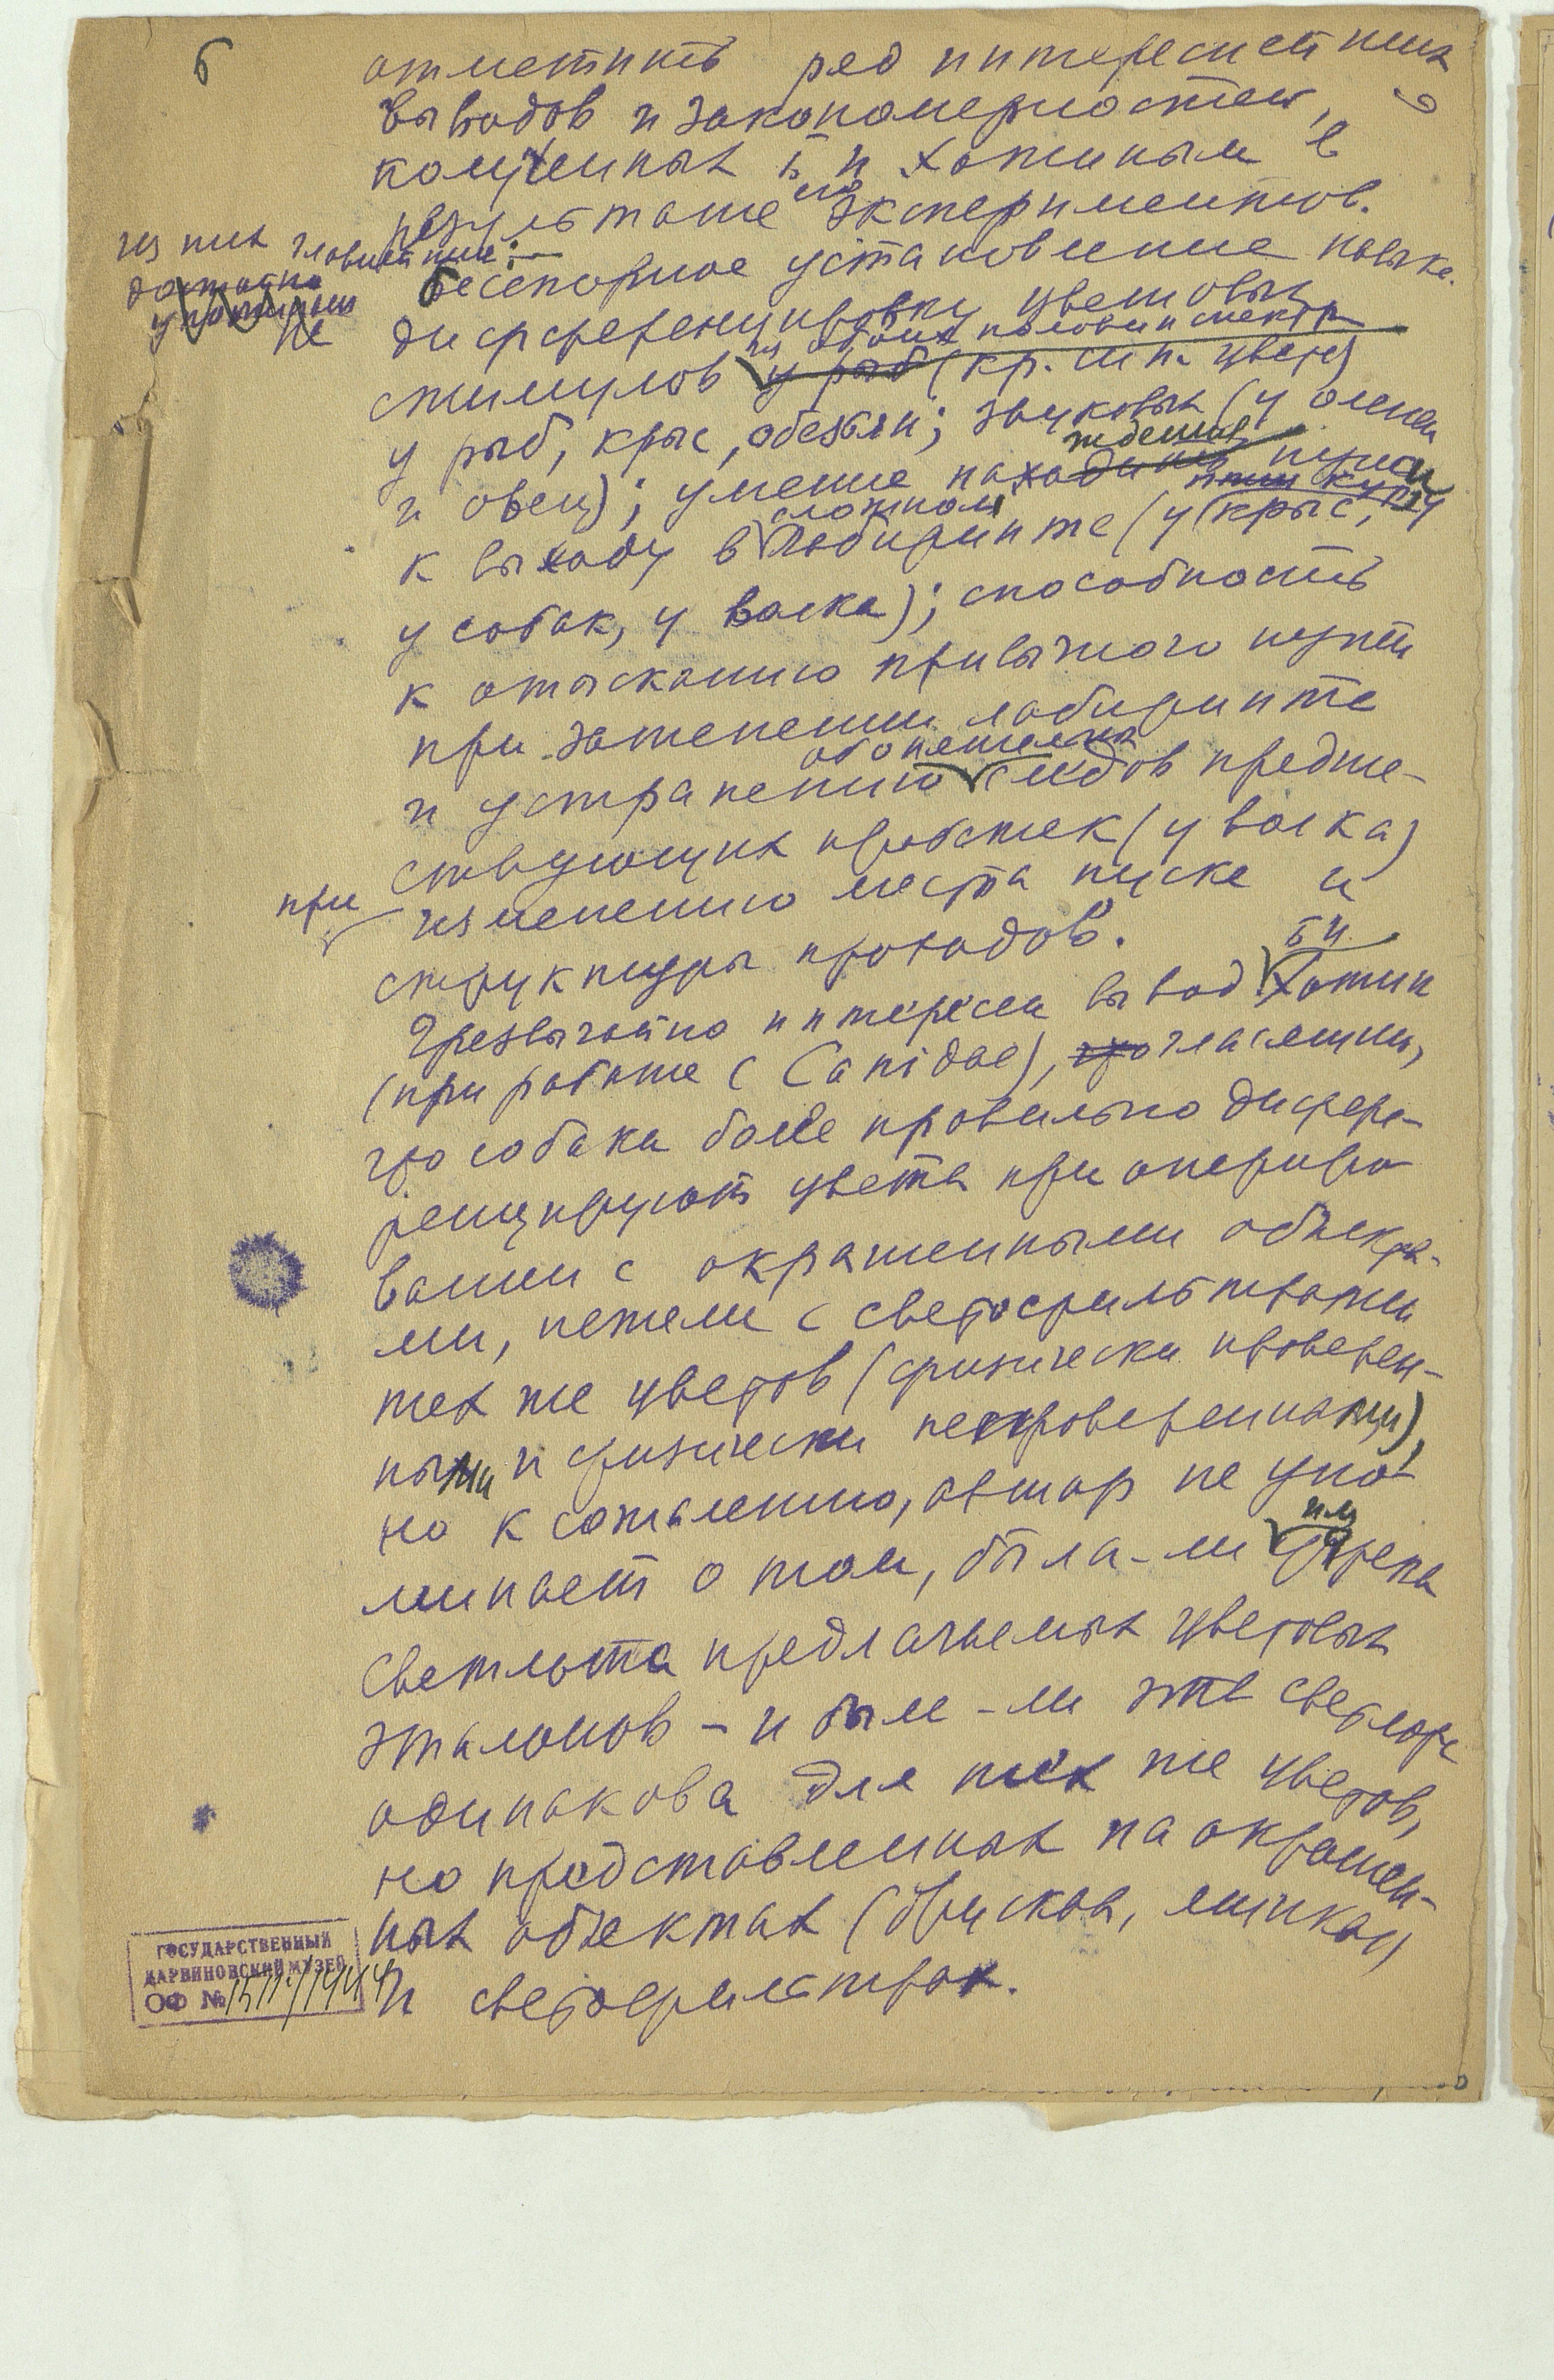 6
отметить ряд интереснейших
выводов и закономерностей,
полученных Б И Хотиным в
результате его экспериментов.
из них главнейшие:
Бесспорное установление навыка
дифференцировки цветовых
из обоих половин спектра
стимулов у рыб (кр. син. цвета)
у рыб, крыс, обезьян; звуковых (у оленей
ждению
и овец); умение находить пути
сложном
к выходу в лабиринте (у крыс, кур
у собак, у волка); способность
к отысканию привычного пути
при затенении лабиринта
обонятельных
и устранению следов предше-
ствующих пробежек (у волка)
при изменению места пуска и
структуры проходов.
Б И
Чрезвычайно интересен вывод Хотина
(при работе с Canidae), гласящий,
что собака более правильно диффе-
ренцируют цвета при опериро
вании с окрашенными объекта-
ми, нежели с светофильтрами
тех же цветов (физически проверен-
ными и физически непроверенными),
но к сожалению, автор не упо
минает о том, была-ли
им
светлота предлагаемых цветовых
эталонов – и была-ли эта светлота
одинакова для тех же цветов,
но представленных на окрашен-
ных объектах (брусках, ящиках)
и светофильтрах.
ГОСУДАРСТВЕННЫЙ
ДАРВИНОВСКИЙ МУЗЕЙ
ОФ №